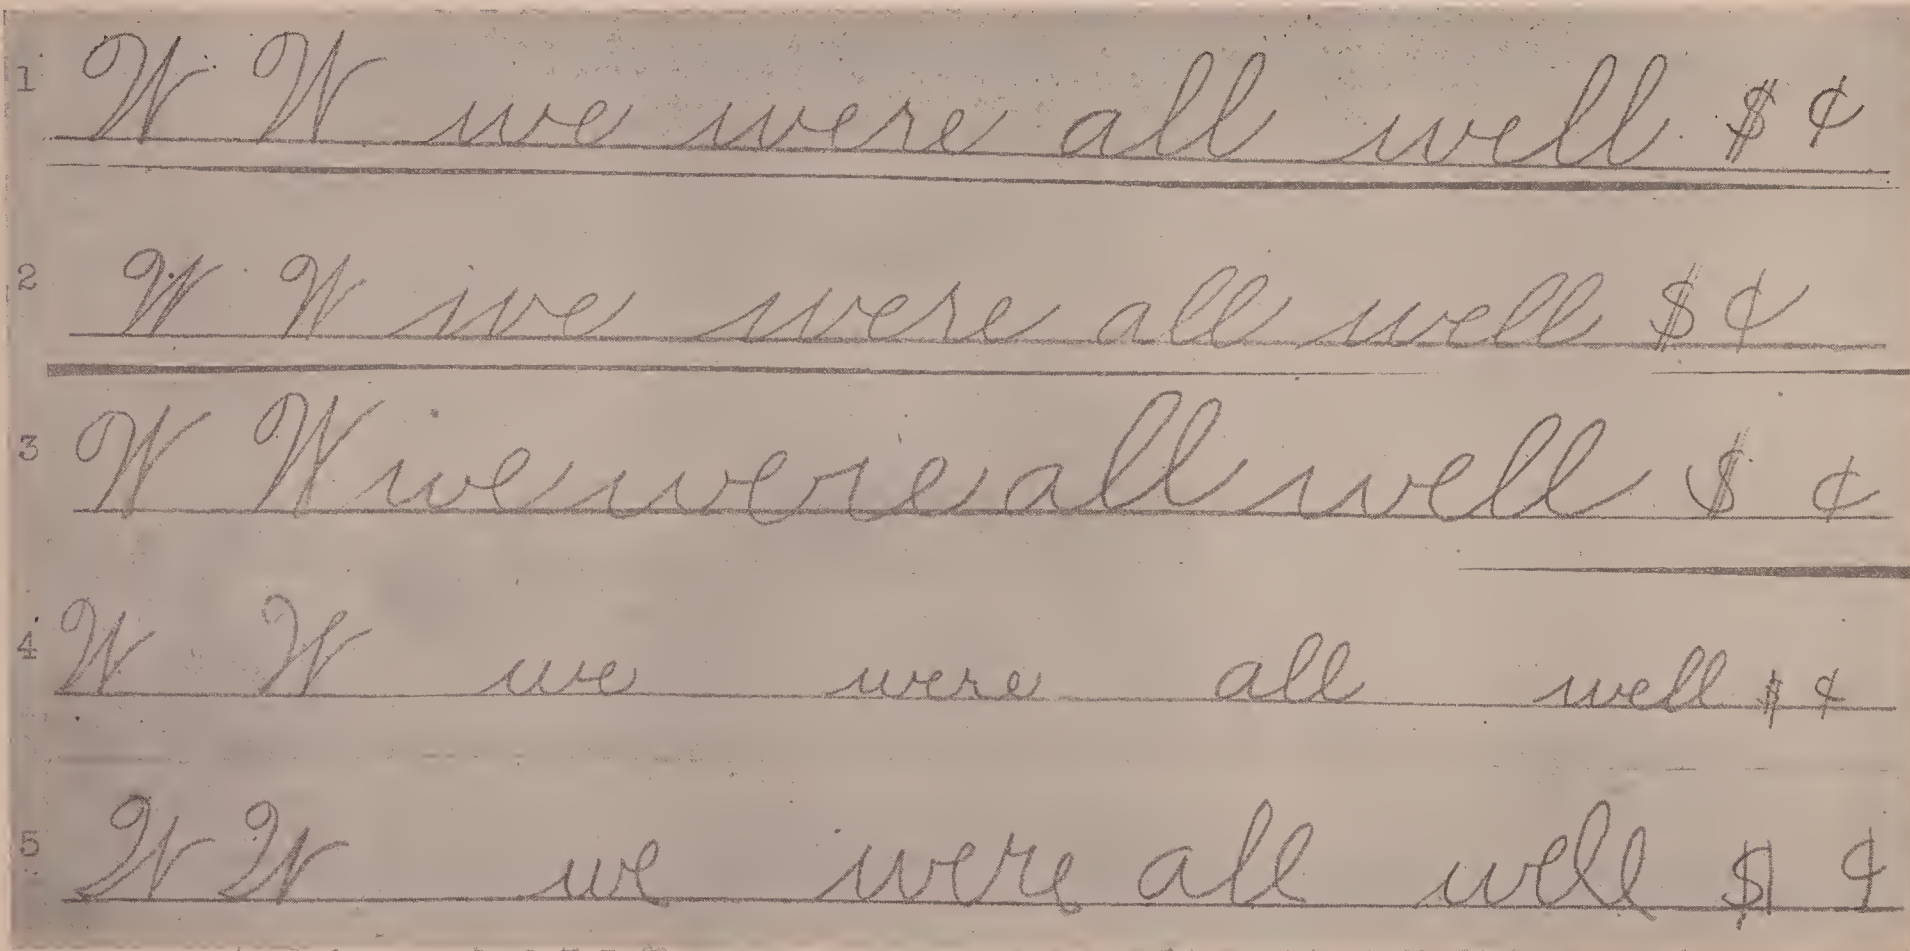 1 W W we were all well $ ¢
2 W W we were all well $ ¢
3 W W we were all well $ ¢
4 W W we were all well $ ¢
5 W W we were all well $ ¢